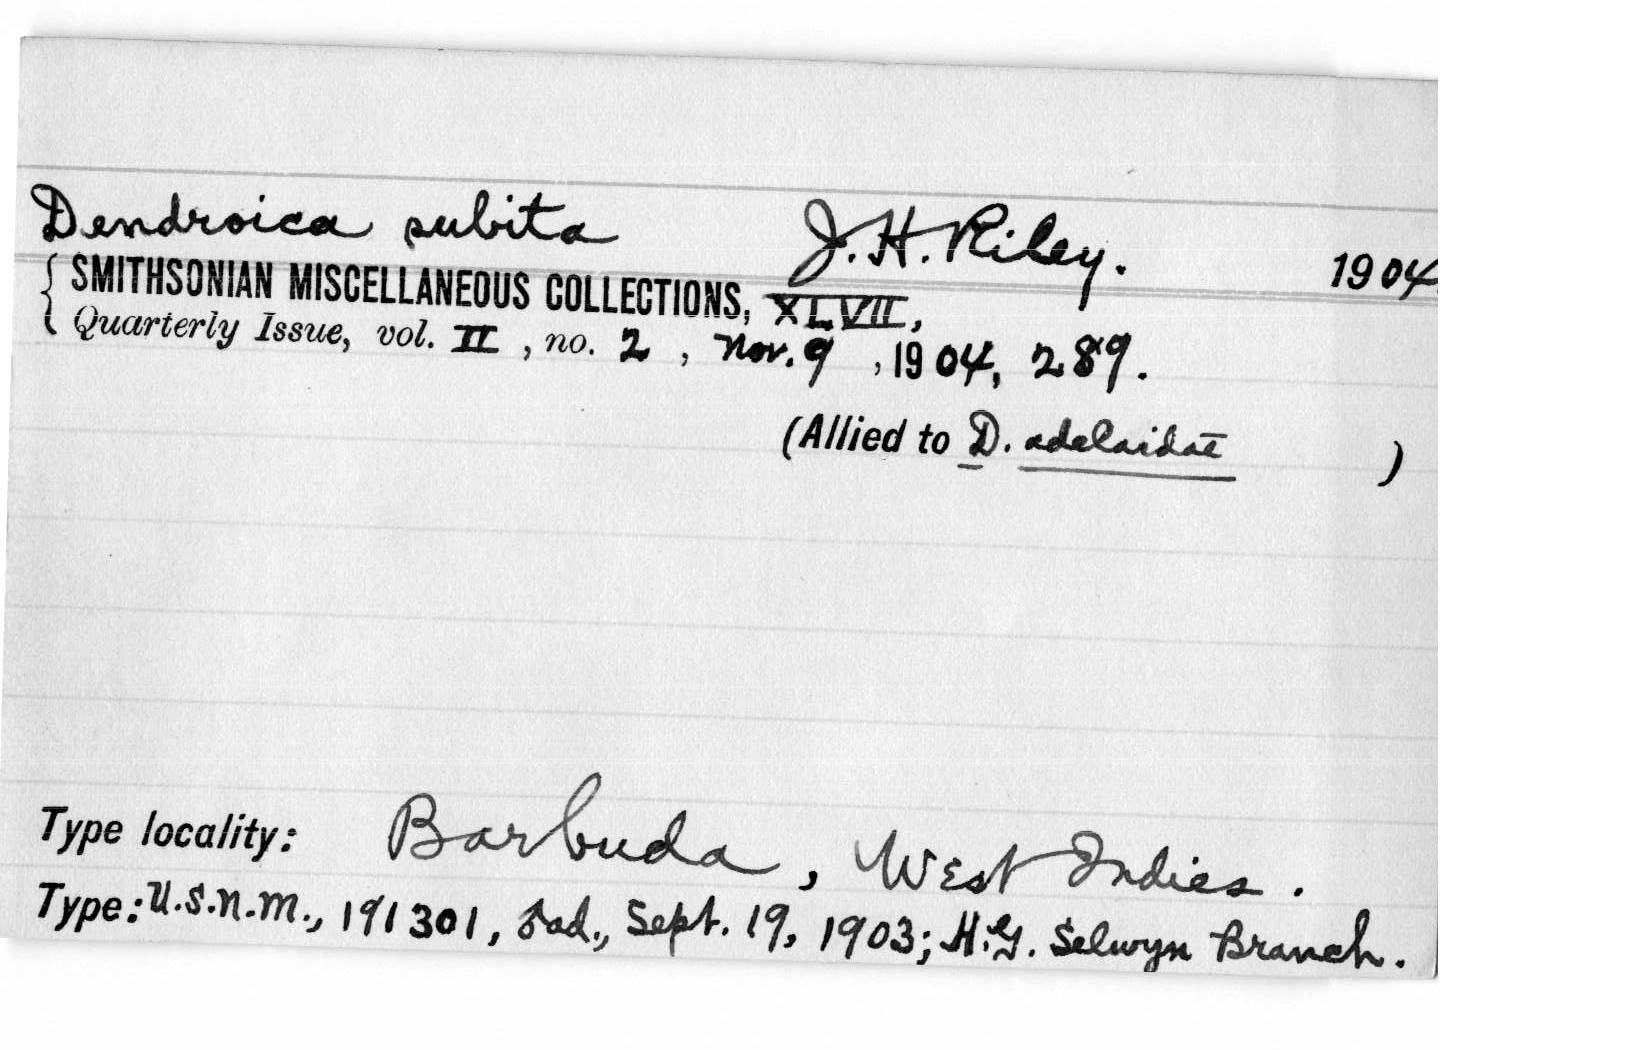 Dendroica subita J. H. Riley. 1904
{ SMITHSONIAN MISCELLANEOUS COLLECTIONS, XLVII,
Quarterly Issue, vol. II, no. 2, Nov. 9, 1904, 289.
(Allied to D. adelaidae )
Type locality: Barbuda, West Indies.
Type: U.S.N.M., 191301, ♂ ad., Sept. 19, 1903; H. G. Selwyn Branch.